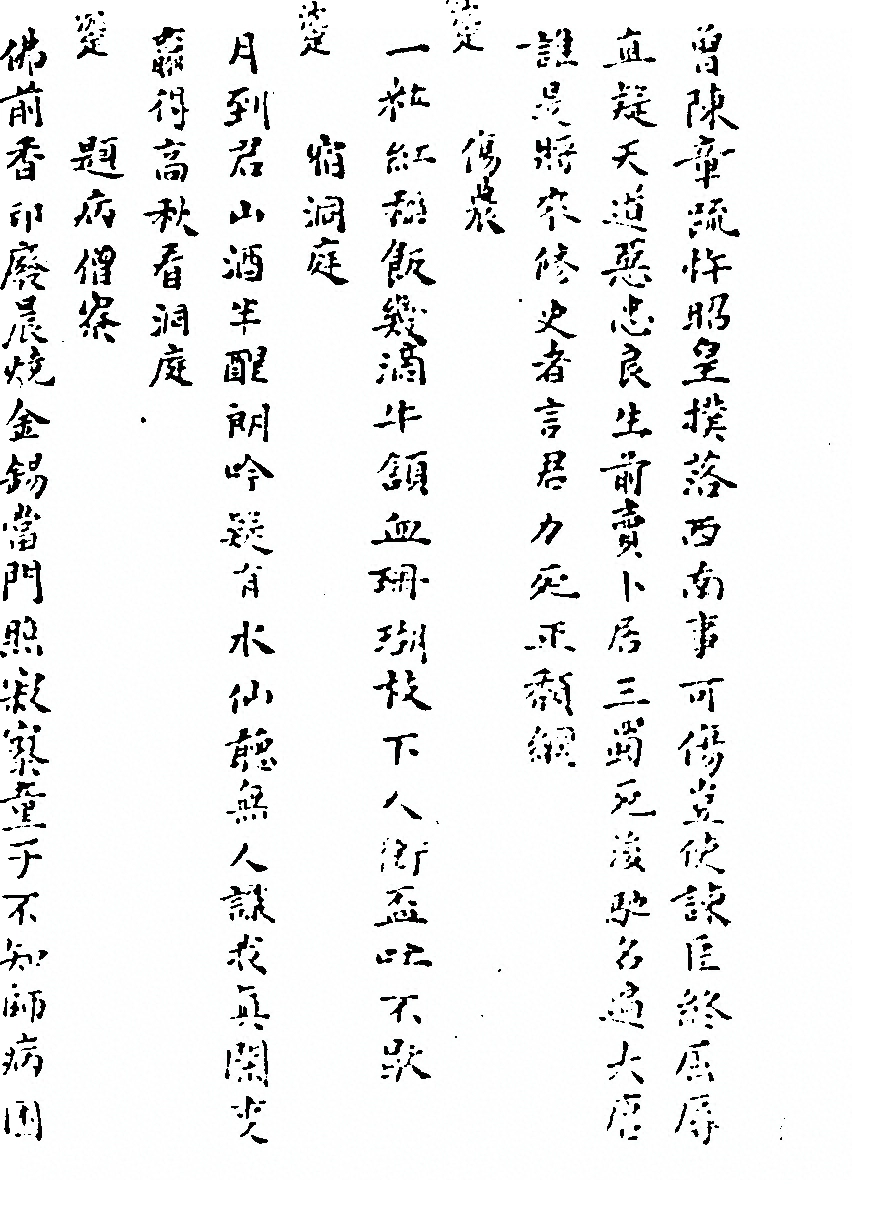 曾陳章疏忤昭皇撲落西南事可傷豈使諫臣終屈辱
直疑天道惡忠良生前賣卜居三蜀死後馳名遍大唐
誰是將來修史者言君力死正頹綱
傷農
一粒紅稻飯幾滴牛頷血珊瑚枝下人銜盃吐不歇
宿洞庭
月到君山酒半醒朗吟疑有水仙聽無人識我真閑
贏得高秋看洞庭
題病僧寮
佛前香印廢晨燒金錫當門照寂寥童子不知師病困